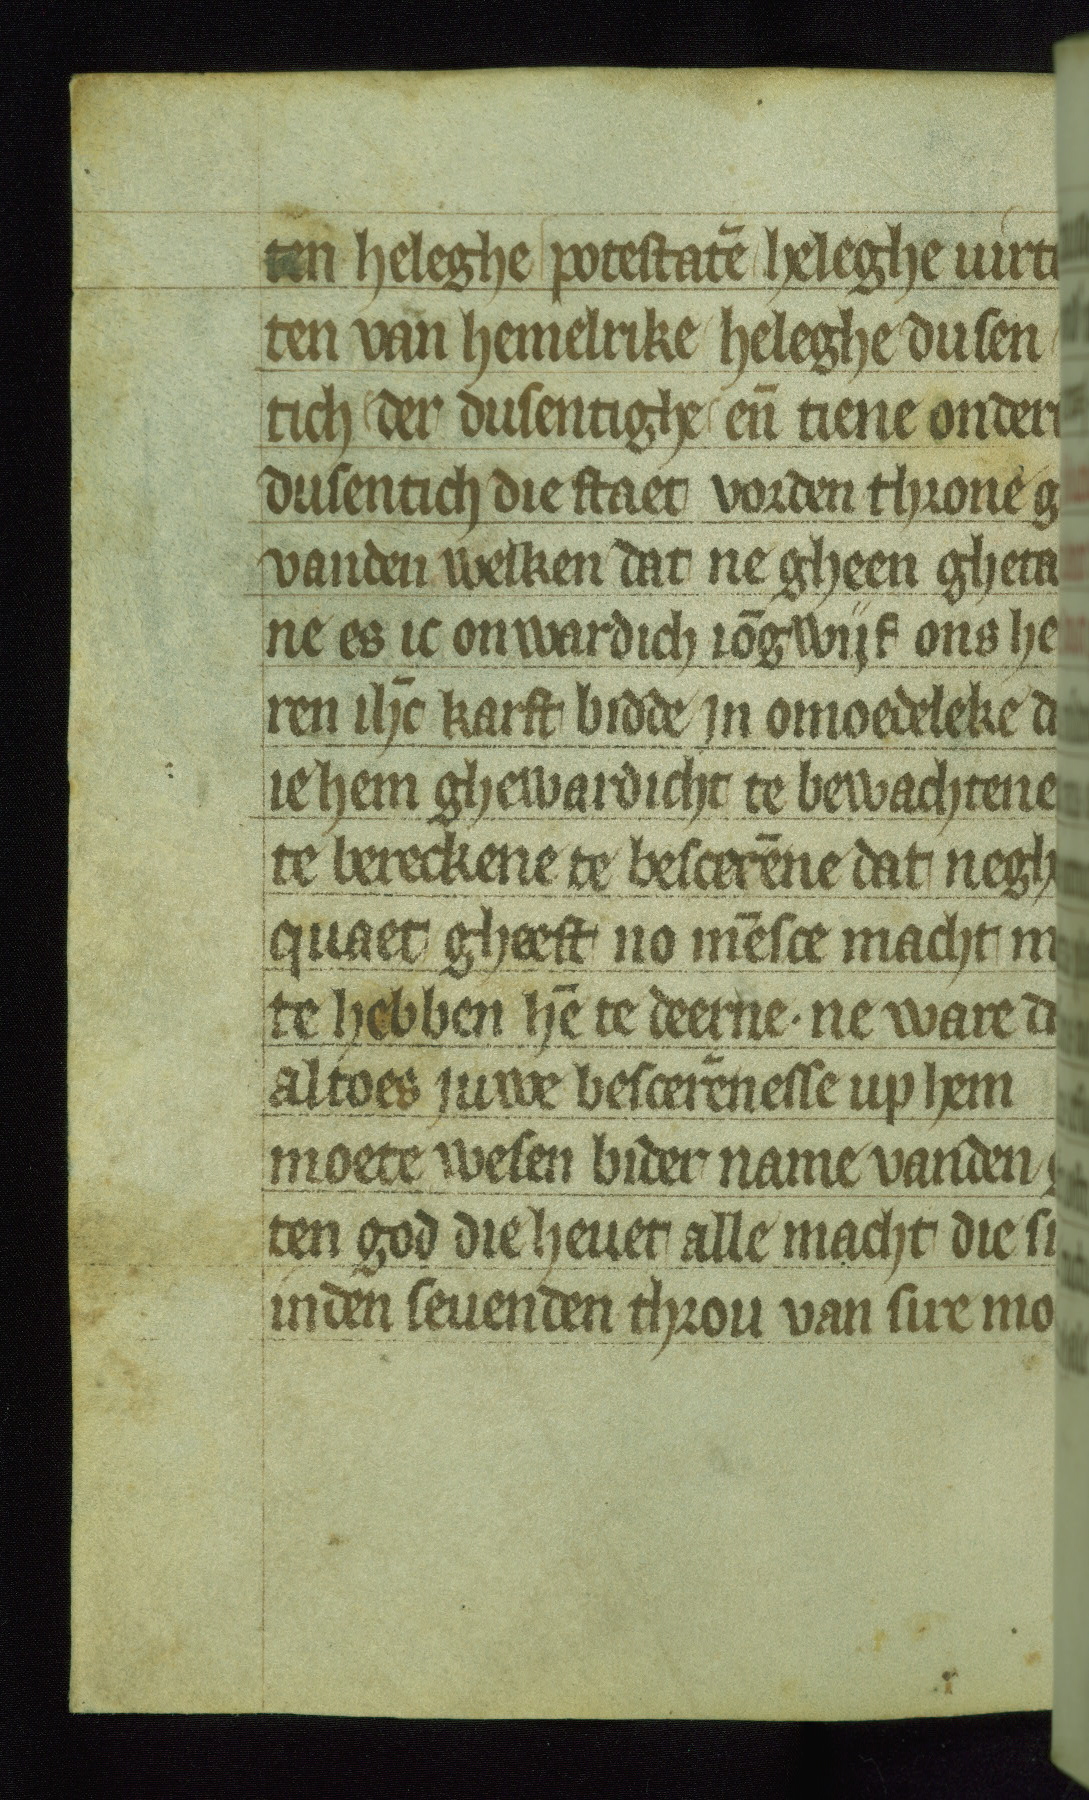 ten heleghe potestatē heleghe uirt
ten van hemelrike heleghe dusen
tich der dusentighe en̄ tiene onder
dusentich die staet vorden throne g
vanden welken dat ne gheen gheta
ne es ic onwardich iōgwijf ons he
ren ih̄c karst bidde jn omoedeleke d
ie hem ghewardicht te bewachtene
te bereckene te bescerēne dat negh
quaet gheest no mēsce macht m
te hebben hē te deerne · ne ware d
altoes juwe bescerēnesse up hem
moete wesen bider name vanden g
ten god die heuet alle macht die si
inden seuenden throu van sire mo